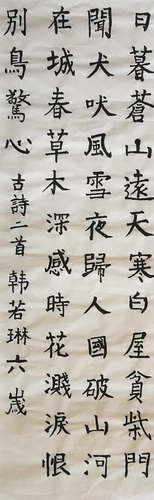 日暮蒼山遠天寒白屋貧柴門
聞犬吠風雪夜歸人國破山河
在城春草木深感時花濺淚恨
別鳥驚心 古詩二首 韓若琳六歲